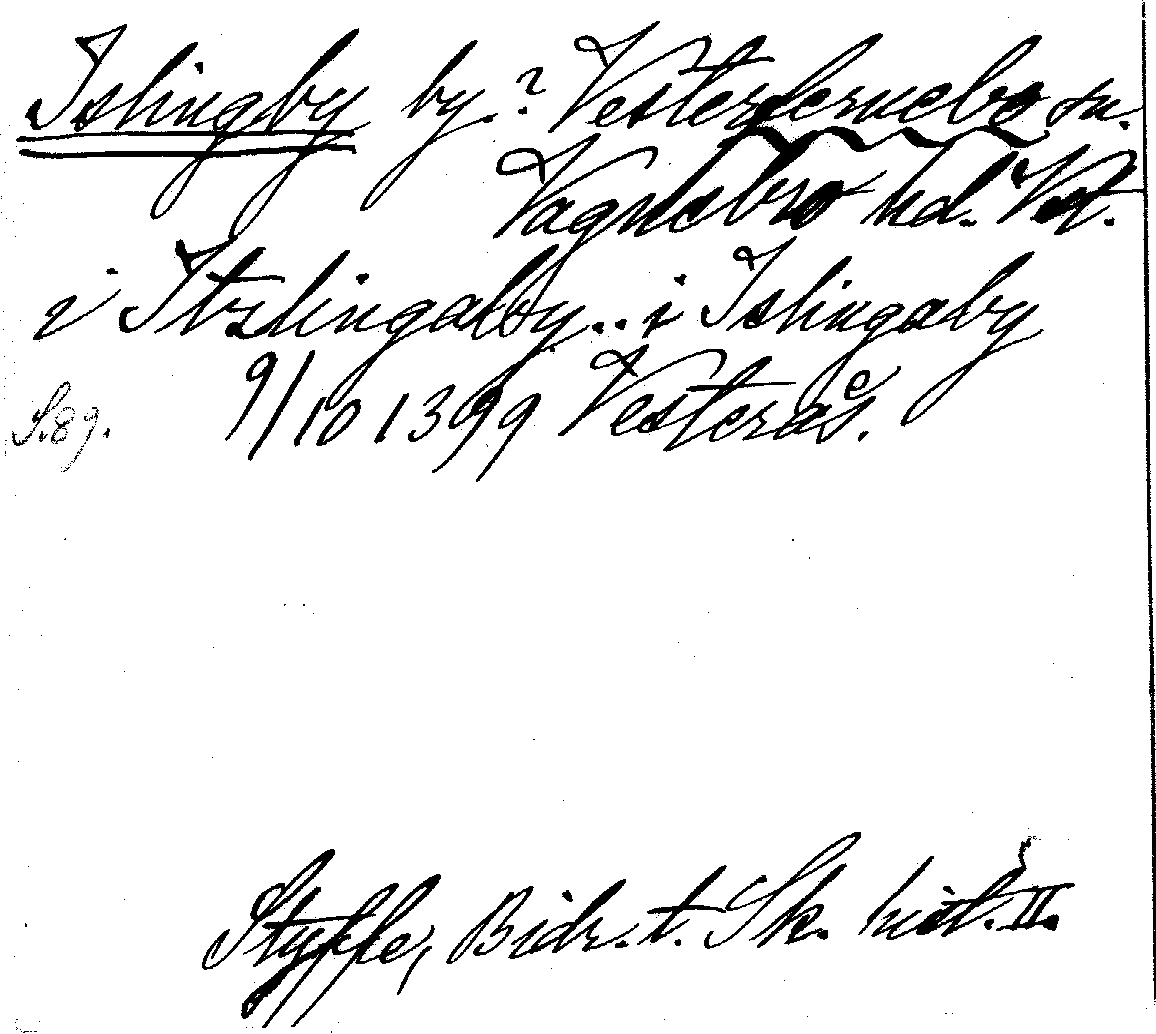 Islingby by.? Vesterfernebo sn.
Vagnsbro hd. Vst.
i Itzlingaby.. i Islingaby
S. 89. 9/10 1399 Vesterås.
Styffe, Bidr. t. Sk. hist. II.